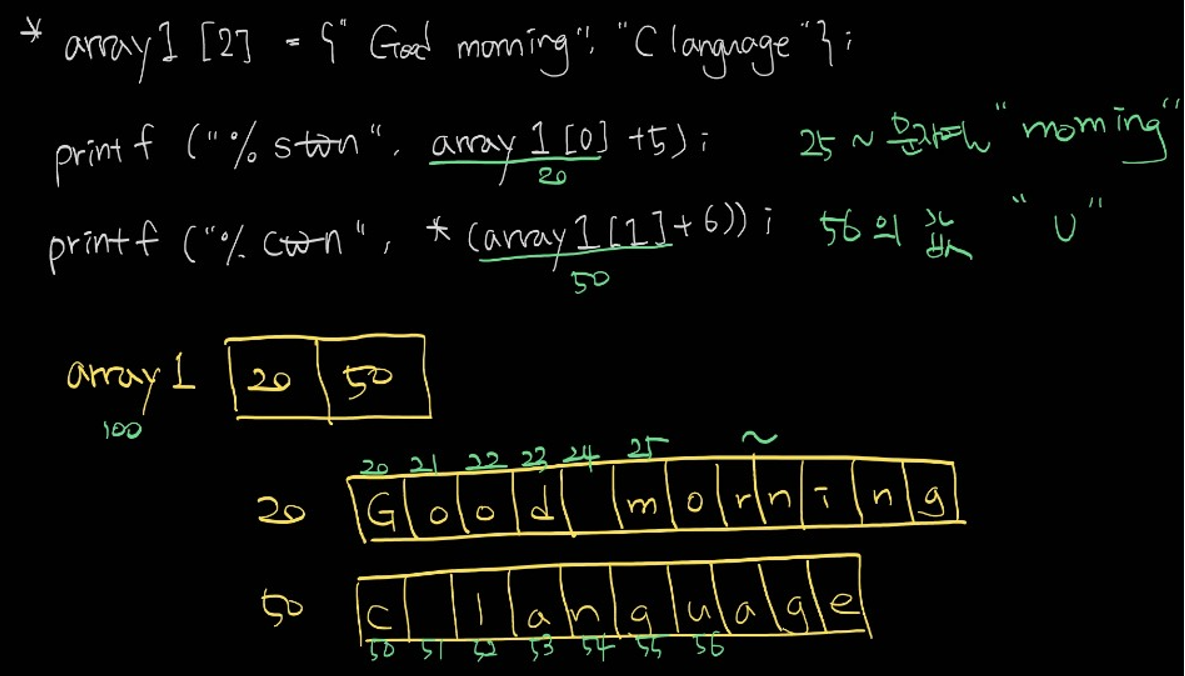 * array1 [2] = {"Good morning", "C language"};
printf ("%s\n", array1[0] +5); 25 ~ 문자열 "morning"
20
printf ("%c\n", * (array1[1]+6)); 56의 값 "u"
50
array1 20 50
100
20 21 22 23 24 25 ~
20 G o o d m o r n i n g
50 C l a n g u a g e
50 51 52 53 54 55 56